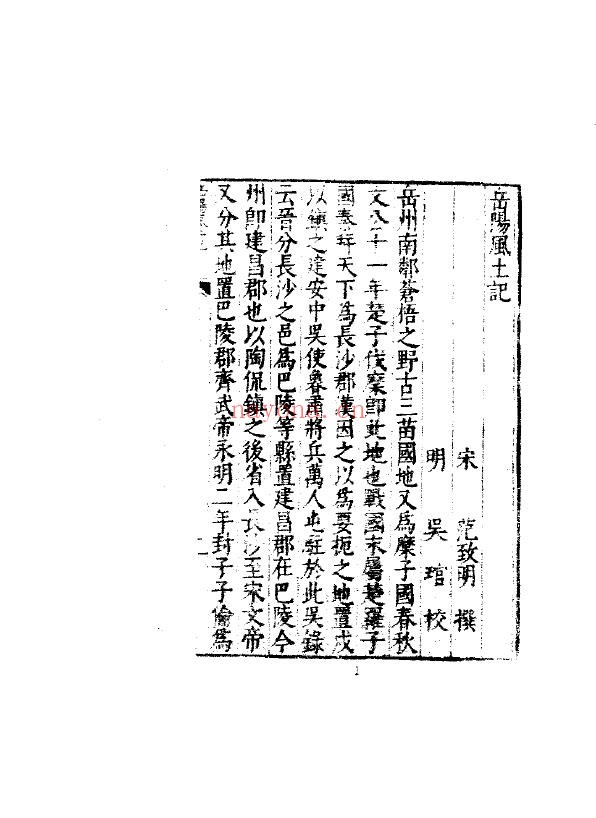 岳陽風土記
宋 范致明 撰
明 吳琯 校
岳州南鄰蒼梧之野古三苗國地又爲麋子國春秋
文公十一年楚子伐麋卽此地也戰國末屬楚羅子
國秦幷天下爲長沙郡漢因之以爲要扼之地置戍
以鎮之建安中吳使魯肅將兵萬人屯駐於此吳錄
云晉分長沙之邑爲巴陵等縣置建昌郡在巴陵今
州卽建昌郡也以陶侃鎮之後省入長沙至宋文帝
又分其地置巴陵郡齊武帝永明二年封子子倫爲
1